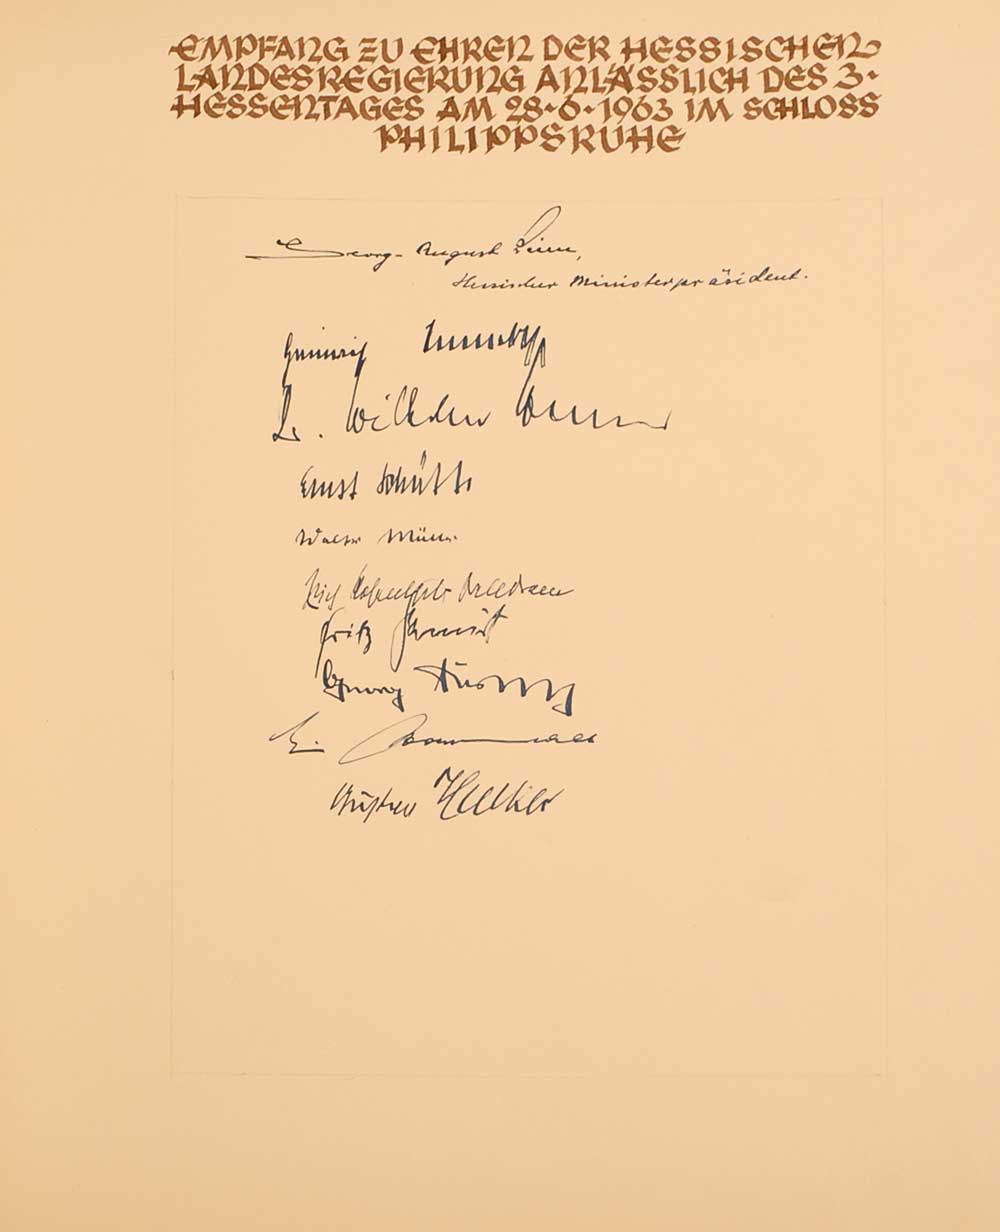 EMPFANG ZU EHREN DER HESSISCHEN
LANDESREGIERUNG ANLÄSSLICH DES 3.
HESSENTAGES AM 28.6.1963 IM SCHLOSS
PHILIPPSRUHE
Georg-August Zinn,
Hessischer Ministerpräsident.
Heinrich
Dr. Wilhelm
Ernst Schütte
Walter Müller
Fritz
Georg
E.
Gustav Hacker